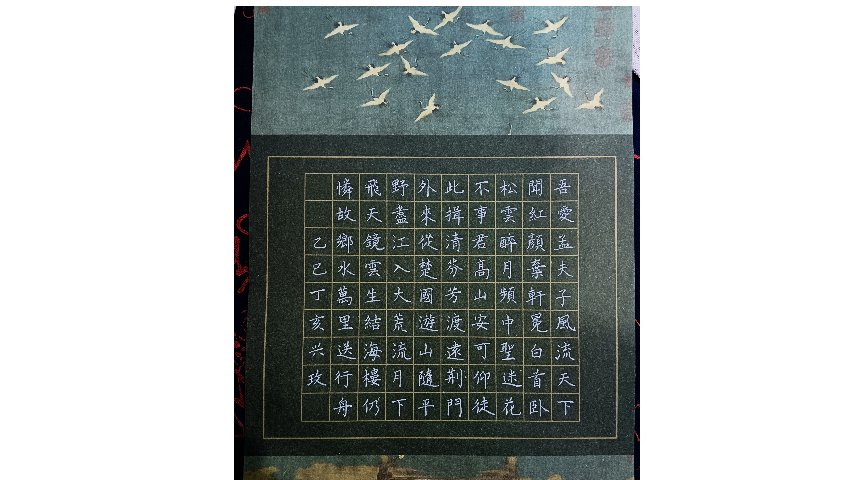 吾愛孟夫子風流天下
聞紅顏棄軒冕白首卧
松雲醉月頻中聖迷花
不事君高山安可仰徒
此揖清芬芳渡遠荆門
外來從楚國遊山隨平
野盡江入大荒流月下
飛天鏡雲生結海樓仍
憐故鄉水萬里送行舟
乙巳丁亥兴玫